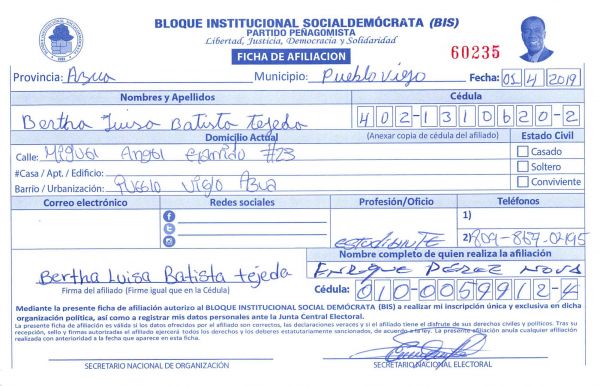 BLOQUE INSTITUCIONAL SOCIALDEMÓCRATA (BIS)
PARTIDO PEÑAGOMISTA
Libertad, Justicia, Democracia y Solidaridad
FICHA DE AFILIACION
60235
Provincia: Azua Municipio: Pueblo Viejo Fecha: 01/4/2019
Nombres y Apellidos Cédula
Bertha Luisa Batista tejeda 402-1310620-2
Domicilio Actual (Anexar copia de cédula del afiliado) Estado Civil
Calle: Miguel Angel #23
#Casa / Apt. / Edificio:
Barrio / Urbanización: Pueblo Viejo Azua
Casado
Soltero
Conviviente
Correo electrónico Redes sociales Profesión/Oficio Teléfonos
estudiante
1)
2) 809-867-0495
Nombre completo de quien realiza la afiliación
Bertha Luisa Batista tejeda ENRIQUE PÉREZ NOVA
Firma del afiliado (Firme igual que en la Cédula) Cédula: 010-0059912-4
Mediante la presente ficha de afiliación autorizo al BLOQUE INSTITUCIONAL SOCIAL DEMÓCRATA (BIS) a realizar mi inscripción única y exclusiva en dicha
organización política, así como a registrar mis datos personales ante la Junta Central Electoral.
La presente ficha de afiliación es válida si los datos ofrecidos por el afiliado son correctos, las declaraciones veraces y si el afiliado tiene el disfrute de sus derechos civiles y políticos. Tras su
recepción, sello y firmas autorizadas el afiliado ejercerá todos los derechos y los deberes estatutariamente sancionados, de acuerdo a la ley. La presente afiliación anula cualquier afiliación
realizada con anterioridad a la fecha que aparece en esta ficha.
SECRETARIO NACIONAL DE ORGANIZACIÓN SECRETARIO NACIONAL ELECTORAL